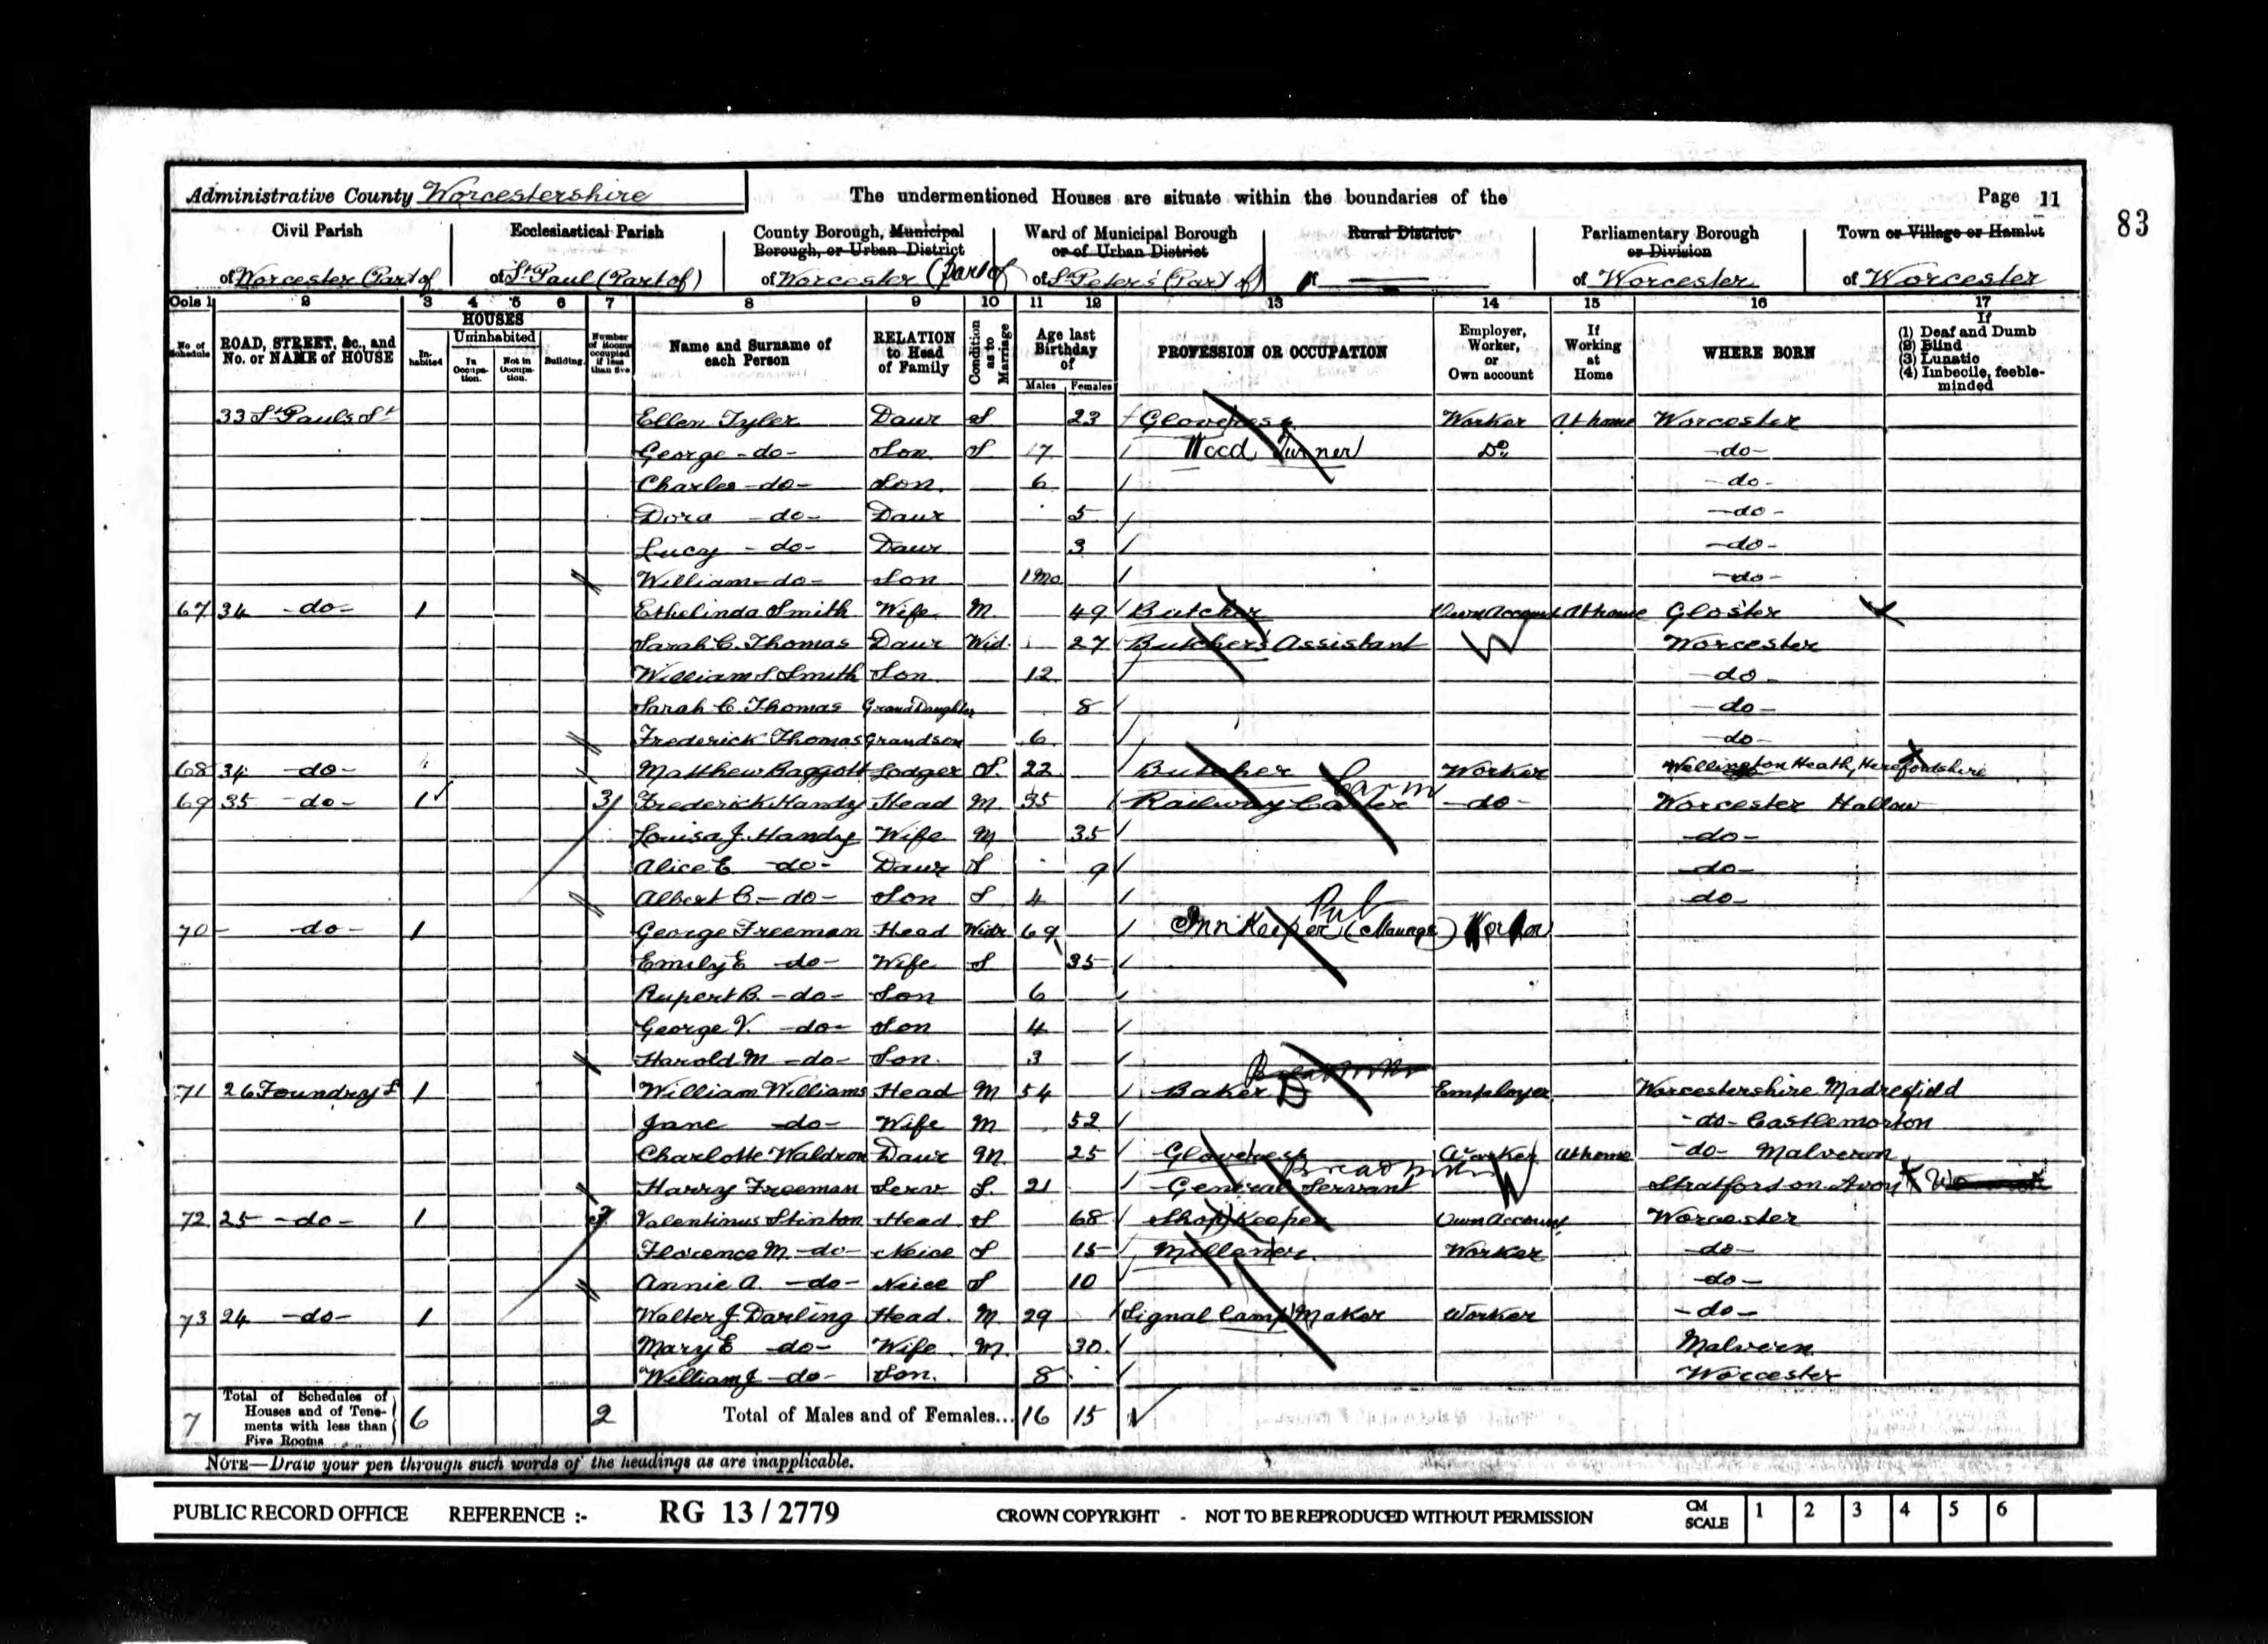 Administrative County Worcestershire The undermentioned Houses are situate within the boundaries of the Page 11
83
Civil Parish Ecclesiastical Parish County Borough, Municipal Borough, or Urban District Ward of Municipal Borough or of Urban District Rural District Parliamentary Borough or Division Town or Village or Hamlet
of Worcester (Part of of St Paul (Part of) of Worcester (Part of of St Peter's (Part of) of of Worcester of Worcester
Cols 1 2 3 4 5 6 7 8 9 10 11 12 13 14 15 16 17
No. of Schedule ROAD, STREET, &c., and No. or NAME of HOUSE HOUSES Inhabited Uninhabited In Occupation. Not in Occupation. Building. Number of Rooms occupied if less than five Name and Surname of each Person RELATION to Head of Family Condition as to Marriage Age last Birthday of Males Females PROFESSION OR OCCUPATION Employer, Worker, or Own account If Working at Home WHERE BORN If (1) Deaf and Dumb (2) Blind (3) Lunatic (4) Imbecile, feeble-minded
33 St Pauls St Ellen Tyler Daur S 23 Gloveress Worker At home Worcester
George -do- Son S 17 Wood Turner Do -do-
Charles -do- Son 6 -do-
Dora -do- Daur 5 -do-
Lucy -do- Daur 3 -do-
William -do- Son 1 Mo -do-
67 34 -do- 1 Ethelinda Smith Wife M 49 Butcher Own Account At home Gloster
Sarah C. Thomas Daur Wid. 27 Butcher's Assistant W Worcester
William S. Smith Son 12 -do-
Sarah C. Thomas Grand Daughter 8 -do-
Frederick Thomas Grandson 6 -do-
68 34 -do- Matthew Baggott Lodger S. 22 Butcher Worker Wellington Heath, Herefordshire
69 35 -do- 1 3 Frederick Handy Head M 35 Railway Carter Carm -do- Worcester Hallow
Louisa J. Handy Wife M 35 -do-
Alice E -do- Daur S 9 -do-
Albert C. -do- Son S 4 -do-
70 -do- 1 George Freeman Head Widr 69 Inn Keeper (Manage) Pub Worker
Emily E -do- Wife S 35
Rupert B. -do- Son 6
George V. -do- Son 4
Harold M -do- Son 3
71 26 Foundry St 1 William Williams Head M 54 Baker Employer Worcestershire Madresfield
Jane -do- Wife M 52 -do- Castlemorton
Charlotte Waldron Daur M. 25 Gloveress Worker At home -do- Malvern
Harry Freeman Serv S. 21 General Servant W Stratford on Avon
72 25 -do- 1 Valentinus Stinton Head S 68 Shop Keeper Own Account Worcester
Florence M. -do- Neice S 15 Millaner Worker -do-
Annie A. -do- Neice S 10 -do-
73 24 -do- 1 Walter J. Darling Head M 29 Signal Lamp Maker Worker -do-
Mary E -do- Wife M. 30 Malvern
William J. -do- Son. 8 Worcester
7 Total of Schedules of Houses and of Tenements with less than Five Rooms 6 2 Total of Males and of Females... 16 15
NOTE—Draw your pen through such words of the headings as are inapplicable.
PUBLIC RECORD OFFICE REFERENCE :- RG 13 / 2779 CROWN COPYRIGHT - NOT TO BE REPRODUCED WITHOUT PERMISSION CM SCALE 1 2 3 4 5 6